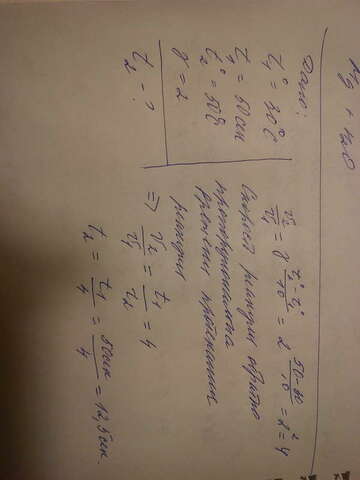 Дано:
t°₁ = 30°C
t₁ = 50 сек
t°₂ = 50°C
γ = 2
t₂ - ?
v₂/v₁ = γ^((t°₂ - t°₁)/10) = 2^((50-30)/10) = 2² = 4
Скорость реакции обратно
пропорциональна
времени протекания
реакции
=> v₂/v₁ = t₁/t₂ = 4
t₂ = t₁/4 = 50сек/4 = 12,5 сек.